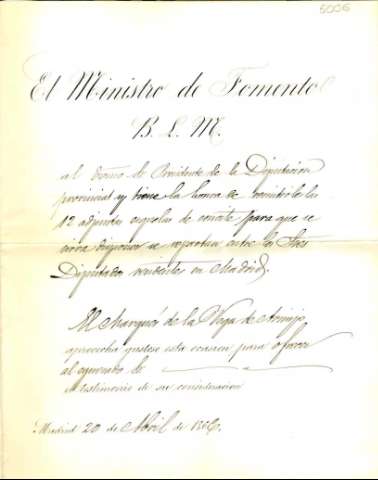 5006
El Ministro de Fomento
B. L. M.
al Excmo Sr. Presidente de la Diputacion
provincial y tiene la honra de remitirle las
12 adjuntas esquelas de convite para que se
sirva disponer se repartan entre los Sres
Diputados residentes en Madrid.
El Marqués de la Vega de Armijo
aprovecha gustoso esta ocasion para ofrecer
al espresado Sr.
el testimonio de su consideracion
Madrid 20 de Abril de 1866.